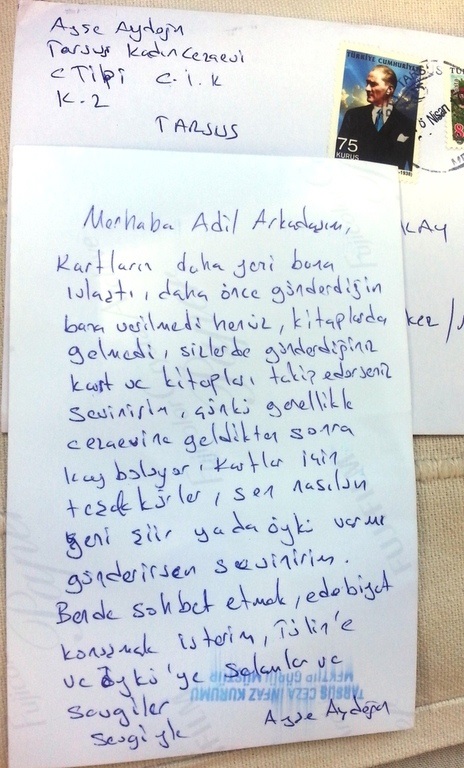 Ayşe Aydoğn
Tarsus Kadın Cezaevi
C Tipi C.i.K
K-2
TARSUS
TÜRKİYE CUMHURİYETİ
75
KURUŞ
Nisan
KAY
Merhaba Adil Arkadaşım,
Kartların daha yeni bana
ulaştı, daha önce gönderdiğin
bana verilmedi henüz, kitaplarda
gelmedi, sizlerde gönderdiğiniz
kart ve kitapları takip ederseniz
sevinirim, çünkü genellikle
cezaevine geldikten sonra
kayboluyor, kartlar için
teşekkürler, sen nasılsın
yeni şiir yada öykü varmı
gönderirsen sevinirim.
Bende sohbet etmek, edebiyat
konuşmak isterim, Tülin'e
ve Öykü'ye Selamlar ve
sevgiler
Sevgiyle
Ayşe Aydoğn
TARSUS CEZA İNFAZ KURUMU